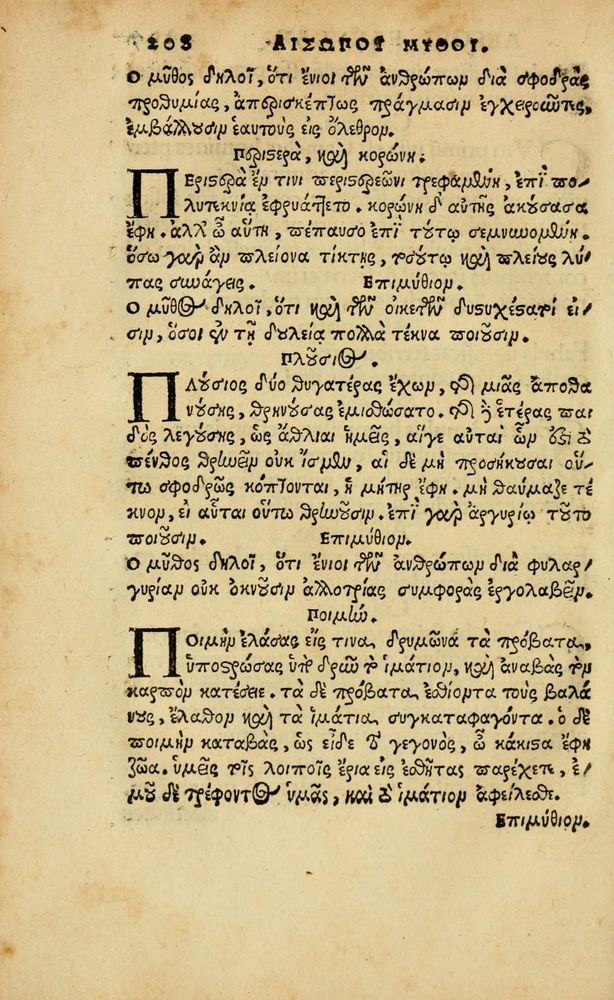 208 ΑΙΣΩΠΟΥ ΜΥΘΟΙ.
Ο μῦθος δηλοῖ, ὅτι ἔνιοι τῶν ἀνθρώπων διὰ σφοδρᾶς
προθυμίας, ἀπερισκέπτως πράγμασιν ἐγχειροῦντες,
ἐμβάλλουσιν ἑαυτοὺς εἰς ὄλεθρον.
Περιστερὰ, καὶ κορώνη.
ΠΕριστερὰ ἔν τινι περιστερεῶνι τρεφομένη, ἐπὶ πο-
λυτεκνίᾳ ἐφρυάττετο. κορώνη δ' αὐτῆς ἀκούσασα
ἔφη. ἀλλ' ὦ αὕτη, πέπαυσο ἐπὶ τούτῳ σεμνυνομένη.
ὅσῳ γὰρ ἂν πλείονα τίκτῃς, τοσούτῳ καὶ πλείους λύ-
πας συνάγεις. Επιμύθιον.
Ο μῦθος δηλοῖ, ὅτι καὶ τῶν οἰκετῶν δυστυχέστατοί εἰ-
σιν, ὅσοι ἐν τῇ δουλείᾳ πολλὰ τέκνα ποιοῦσιν.
Πλούσιος.
ΠΛούσιος δύο θυγατέρας ἔχων, τῆς μιᾶς ἀποθα
νούσης, θρηνούσας ἐμισθώσατο. τῆς δὲ ἑτέρας παι
δὸς λεγούσης, ὡς ἄθλιαι ἡμεῖς, αἵγε αὐταὶ ὧν ἐστὶ τὸ
πένθος θρηνεῖν οὐκ ἴσμεν, αἱ δὲ μὴ προσήκουσαι οὕ-
τω σφοδρῶς κόπτονται, ἡ μήτηρ ἔφη. μὴ θαύμαζε τέ
κνον, εἰ αὗται οὕτω θρηνοῦσιν. ἐπὶ γὰρ ἀργυρίῳ τοῦτο
ποιοῦσιν. Επιμύθιον.
Ο μῦθος δηλοῖ, ὅτι ἔνιοι τῶν ἀνθρώπων διὰ φυλαρ-
γυρίαν οὐκ ὀκνοῦσιν ἀλλοτρίας συμφορὰς ἐργολαβεῖν.
Ποιμήν.
ΠΟιμὴν ἐλάσας εἴς τινα δρυμῶνα τὰ πρόβατα,
ὑποστρώσας ὑπὸ δρῦν τὸ ἱμάτιον, καὶ ἀναβὰς τὸν
καρπὸν κατέσειε. τὰ δὲ πρόβατα ἐσθίοντα τοὺς βαλά
νους, ἔλαθον καὶ τὰ ἱμάτια συγκαταφαγόντα. ὁ δὲ
ποιμὴν καταβὰς, ὡς εἶδε τὸ γεγονὸς, ὦ κάκιστα ἔφη
ζῶα. ὑμεῖς τοῖς λοιποῖς ἔρια εἰς ἐσθῆτας παρέχετε, ἐ-
μοῦ δὲ τρέφοντος ὑμᾶς, καὶ τὸ ἱμάτιον ἀφείλεσθε.
Επιμύθιον.